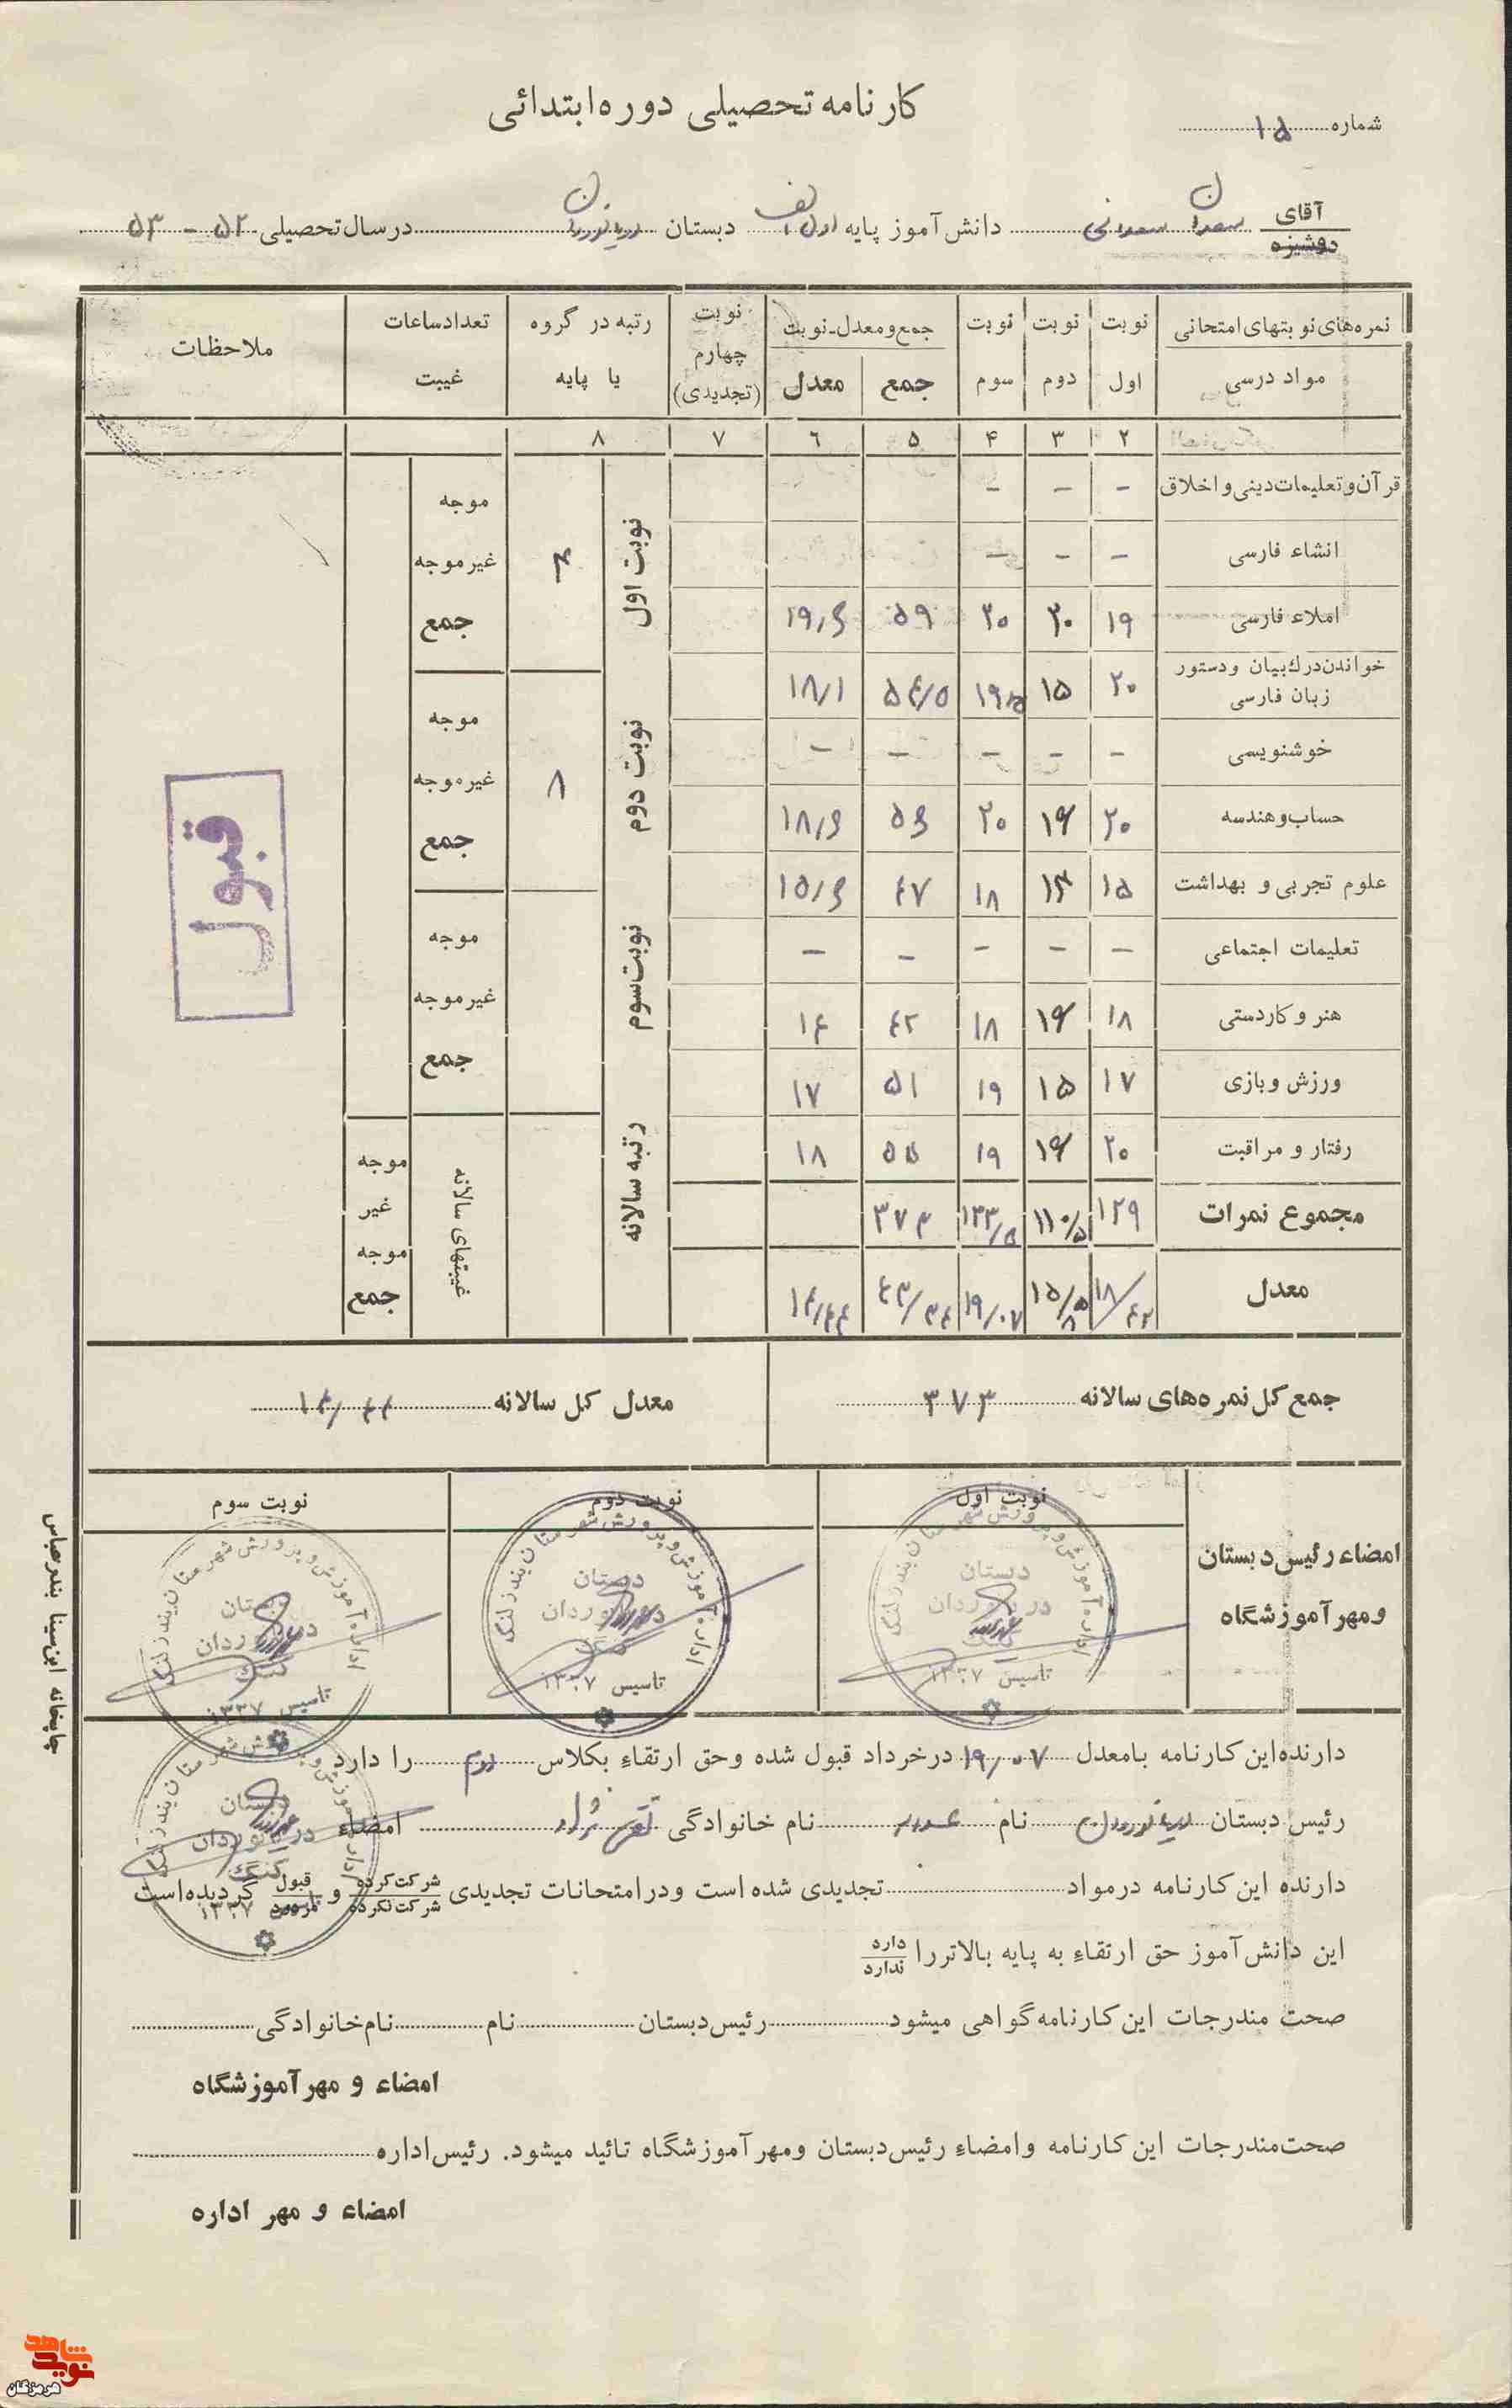 کارنامه تحصیلی دوره ابتدائی
شماره ۱۵
آقای
دوشیزه
دانش آموز پایه اول الف دبستان دریانوردان در سال تحصیلی ۵۲ - ۵۳
نمره‌های نوبتهای امتحانی نوبت نوبت نوبت جمع و معدل - نوبت نوبت رتبه در گروه تعداد ساعات ملاحظات
مواد درسی اول دوم سوم جمع معدل چهارم یا پایه غیبت
(تجدیدی)
۲ ۳ ۴ ۵ ۶ ۷ ۸
قرآن و تعلیمات دینی و اخلاق - - -
انشاء فارسی - - -
املاء فارسی ۱۹ ۲۰ ۲۰ ۵۹ ۱۹/۶
خواندن درک بیان و دستور
زبان فارسی ۲۰ ۱۵ ۱۹/۵ ۵۴/۵ ۱۸/۱
خوشنویسی - - - - -
حساب و هندسه ۲۰ ۱۶ ۲۰ ۵۶ ۱۸/۶
علوم تجربی و بهداشت ۱۵ ۱۴ ۱۸ ۴۷ ۱۵/۶
تعلیمات اجتماعی - - - - -
هنر و کاردستی ۱۸ ۱۶ ۱۸ ۴۲ ۱۴
ورزش و بازی ۱۷ ۱۵ ۱۹ ۵۱ ۱۷
رفتار و مراقبت ۲۰ ۱۶ ۱۹ ۵۵ ۱۸
مجموع نمرات ۱۲۹ ۱۱۰/۵ ۱۳۳/۵ ۳۷۳
معدل ۱۸/۴۲ ۱۵/۵ ۱۹/۰۷ ۱۴/۴۴
نوبت اول ۴ موجه
غیر موجه
جمع
نوبت دوم ۸ موجه
غیر موجه
جمع
نوبت سوم موجه
غیر موجه
جمع
رتبه سالانه غیبتهای سالانه موجه
غیر
موجه
جمع
قبول
جمع کل نمره‌های سالانه ۳۷۳ معدل کل سالانه ۱۴/۴۴
امضاء رئیس دبستان
و مهر آموزشگاه
نوبت اول نوبت دوم نوبت سوم
اداره آموزش و پرورش شهرستان بندر لنگه
دبستان
دریانوردان
کنگ
تاسیس ۱۳۳۷
اداره آموزش و پرورش شهرستان بندر لنگه
دبستان
دریانوردان
کنگ
تاسیس ۱۳۳۷
اداره آموزش و پرورش شهرستان بندر لنگه
دبستان
دریانوردان
کنگ
تاسیس ۱۳۳۷
دارنده این کارنامه بامعدل ۱۹/۰۷ در خرداد قبول شده و حق ارتقاء بکلاس دوم را دارد
رئیس دبستان دریانوردان نام نام خانوادگی امضاء
دبستان
دریانوردان
کنگ
۱۳۳۷
دارنده این کارنامه در مواد تجدیدی شده است و در امتحانات تجدیدی شرکت کرده و قبول گردیده است
شرکت نکرده مردود
این دانش آموز حق ارتقاء به پایه بالاتر را دارد
ندارد
صحت مندرجات این کارنامه گواهی میشود رئیس دبستان نام نام خانوادگی
امضاء و مهر آموزشگاه
صحت مندرجات این کارنامه و امضاء رئیس دبستان و مهر آموزشگاه تائید میشود. رئیس اداره
امضاء و مهر اداره
چاپخانه ابن سینا بندرعباس
نوید شاهد
هرمزگان